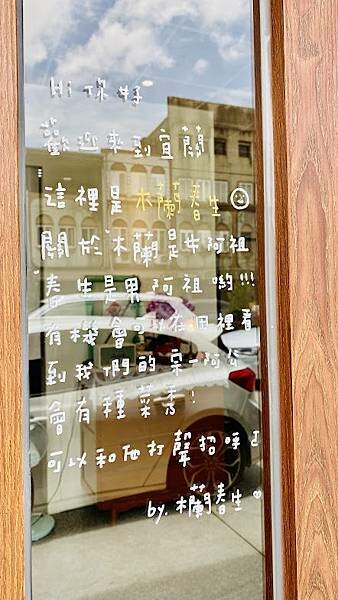 Hi 你好
歡迎來到宜蘭
這裡是木蘭春生
關於木蘭是女阿祖
春生是男阿祖喲!!!
有機會可以在田裡看
到我們的宗一阿公
會有種菜秀!
可以和他打聲招呼
by. 木蘭春生